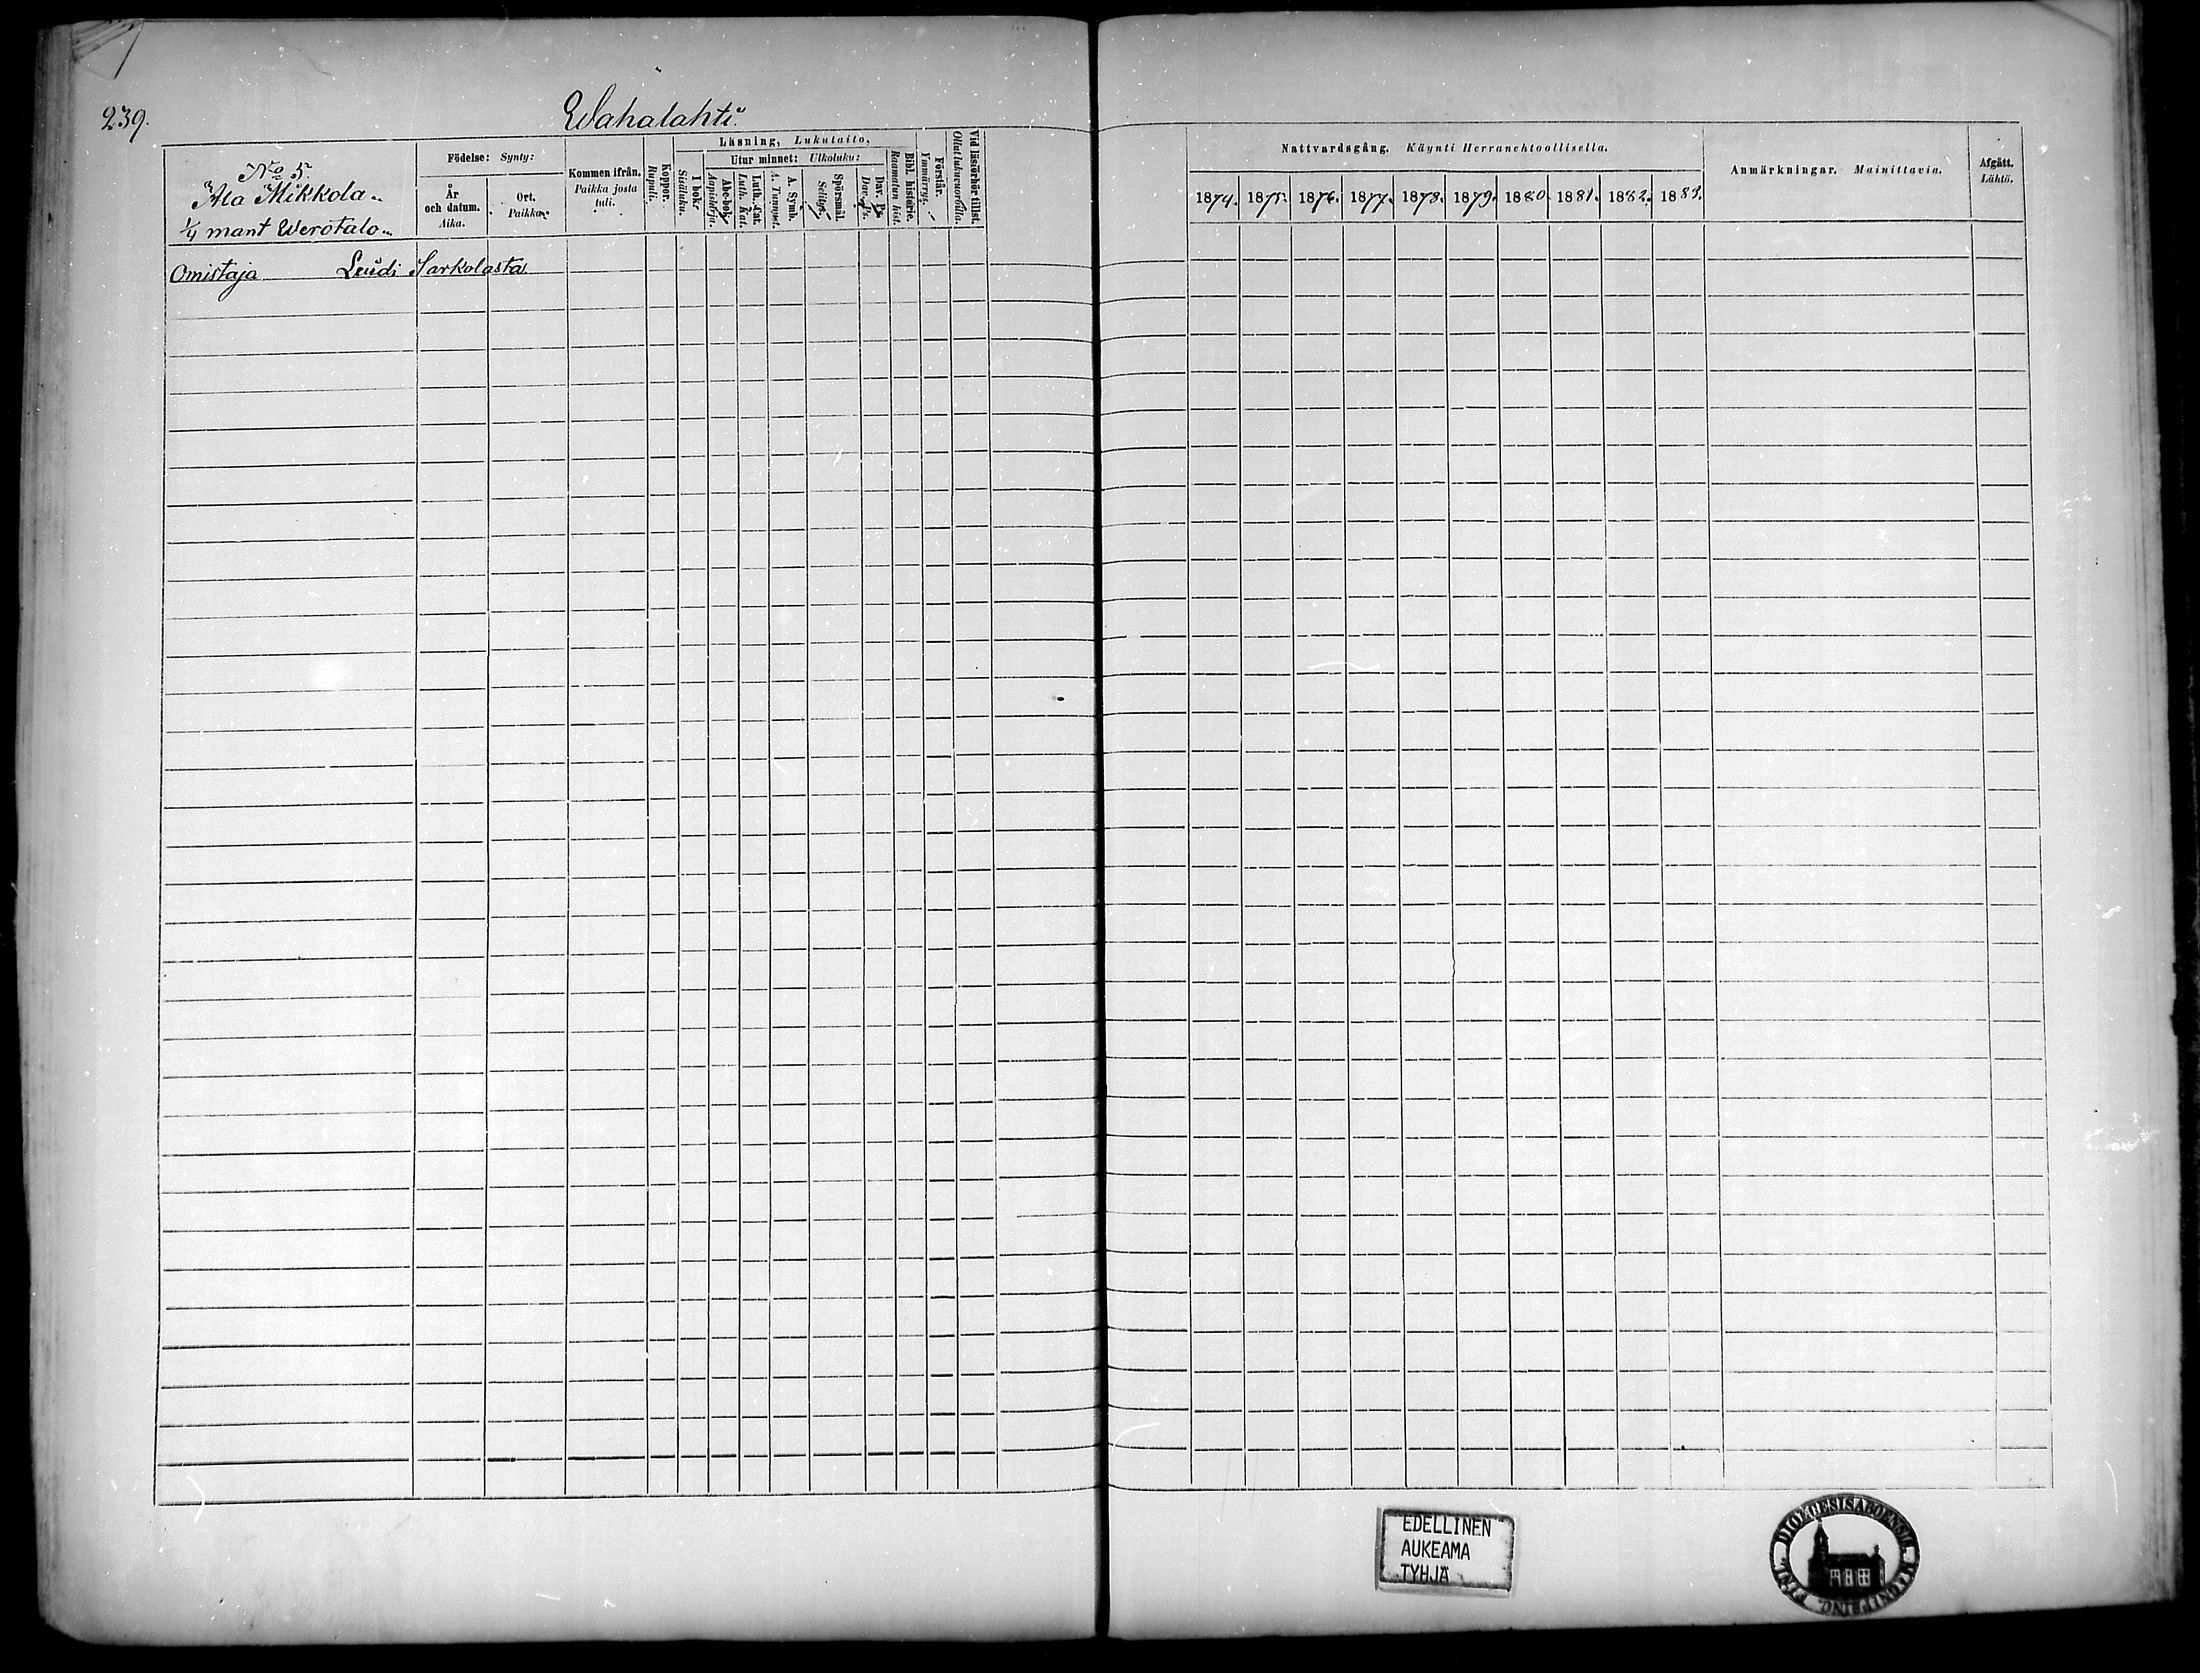 239.
Wahalahti.
No 5.
Ala Mikkola..
1/4 mant Werotalo..
Födelse: Synty:
År och datum. Aika.
Ort. Paikka.
Kommen ifrån. Paikka josta tuli.
Koppor. Rupuli.
Läsning, Lukutaito,
I bok. Sisäluku.
Utur minnet: Ulkoluku:
Abc-bok. Aapiskirja.
Luth. Cat. Luth. Kat.
A. Symb. A. Tunnust.
Spörsmål. Selitys.
Dav. Ps. Dav. Ps.
Bibl. historie. Raamatun hist.
Förstår. Ymmärrys.
Vid läsförhör tillst. Ollut lukuvuorolla.
Nattvardsgång. Käynti Herranehtoollisella.
1874. 1875. 1876. 1877. 1878. 1879. 1880. 1881. 1882. 1883.
Anmärkningar. Mainittavia.
Afgått. Lähtö.
Omistaja Sarkolasta
EDELLINEN
AUKEAMA
TYHJÄ
DIOECESIS ABOENSIS